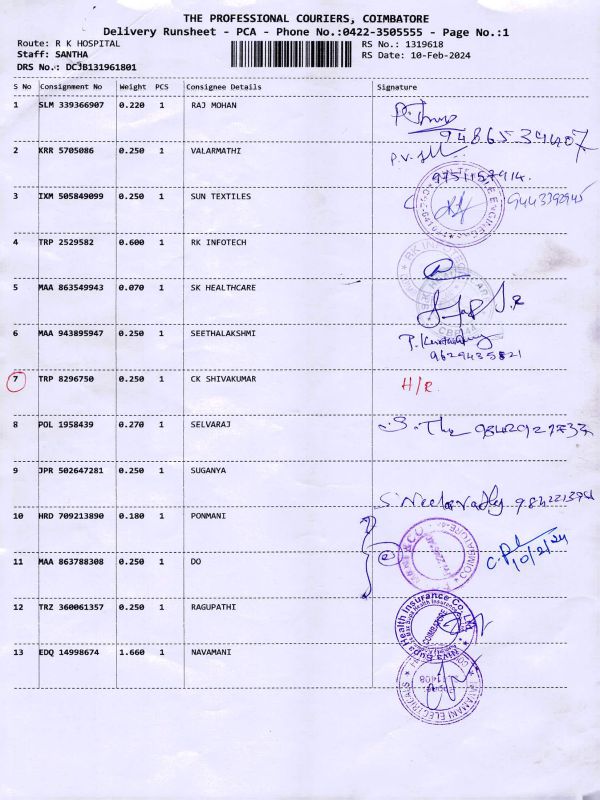 THE PROFESSIONAL COURIERS, COIMBATORE
Delivery Runsheet - PCA - Phone No.:0422-3505555 - Page No.:1
Route: R K HOSPITAL RS No.: 1319618
Staff: SANTHA RS Date: 10-Feb-2024
DRS No.: DCJB131961801
S No Consignment No Weight PCS Consignee Details Signature
1 SLM 339366907 0.220 1 RAJ MOHAN
9486534407
2 KRR 5705086 0.250 1 VALARMATHI P.V.
9751157914.
3 IXM 505849099 0.250 1 SUN TEXTILES 9443392945
4 TRP 2529582 0.600 1 RK INFOTECH
5 MAA 863549943 0.070 1 SK HEALTHCARE
6 MAA 943895947 0.250 1 SEETHALAKSHMI
9629435821
7 TRP 8296750 0.250 1 CK SHIVAKUMAR H/R
8 POL 1958439 0.270 1 SELVARAJ
9 JPR 502647281 0.250 1 SUGANYA
10 HRD 709213890 0.180 1 PONMANI
11 MAA 863788308 0.250 1 DO 10/2/24
12 TRZ 360061357 0.250 1 RAGUPATHI
Niva Bupa Health Insurance Co. Ltd.
COIMBATORE
13 EDQ 14998674 1.660 1 NAVAMANI